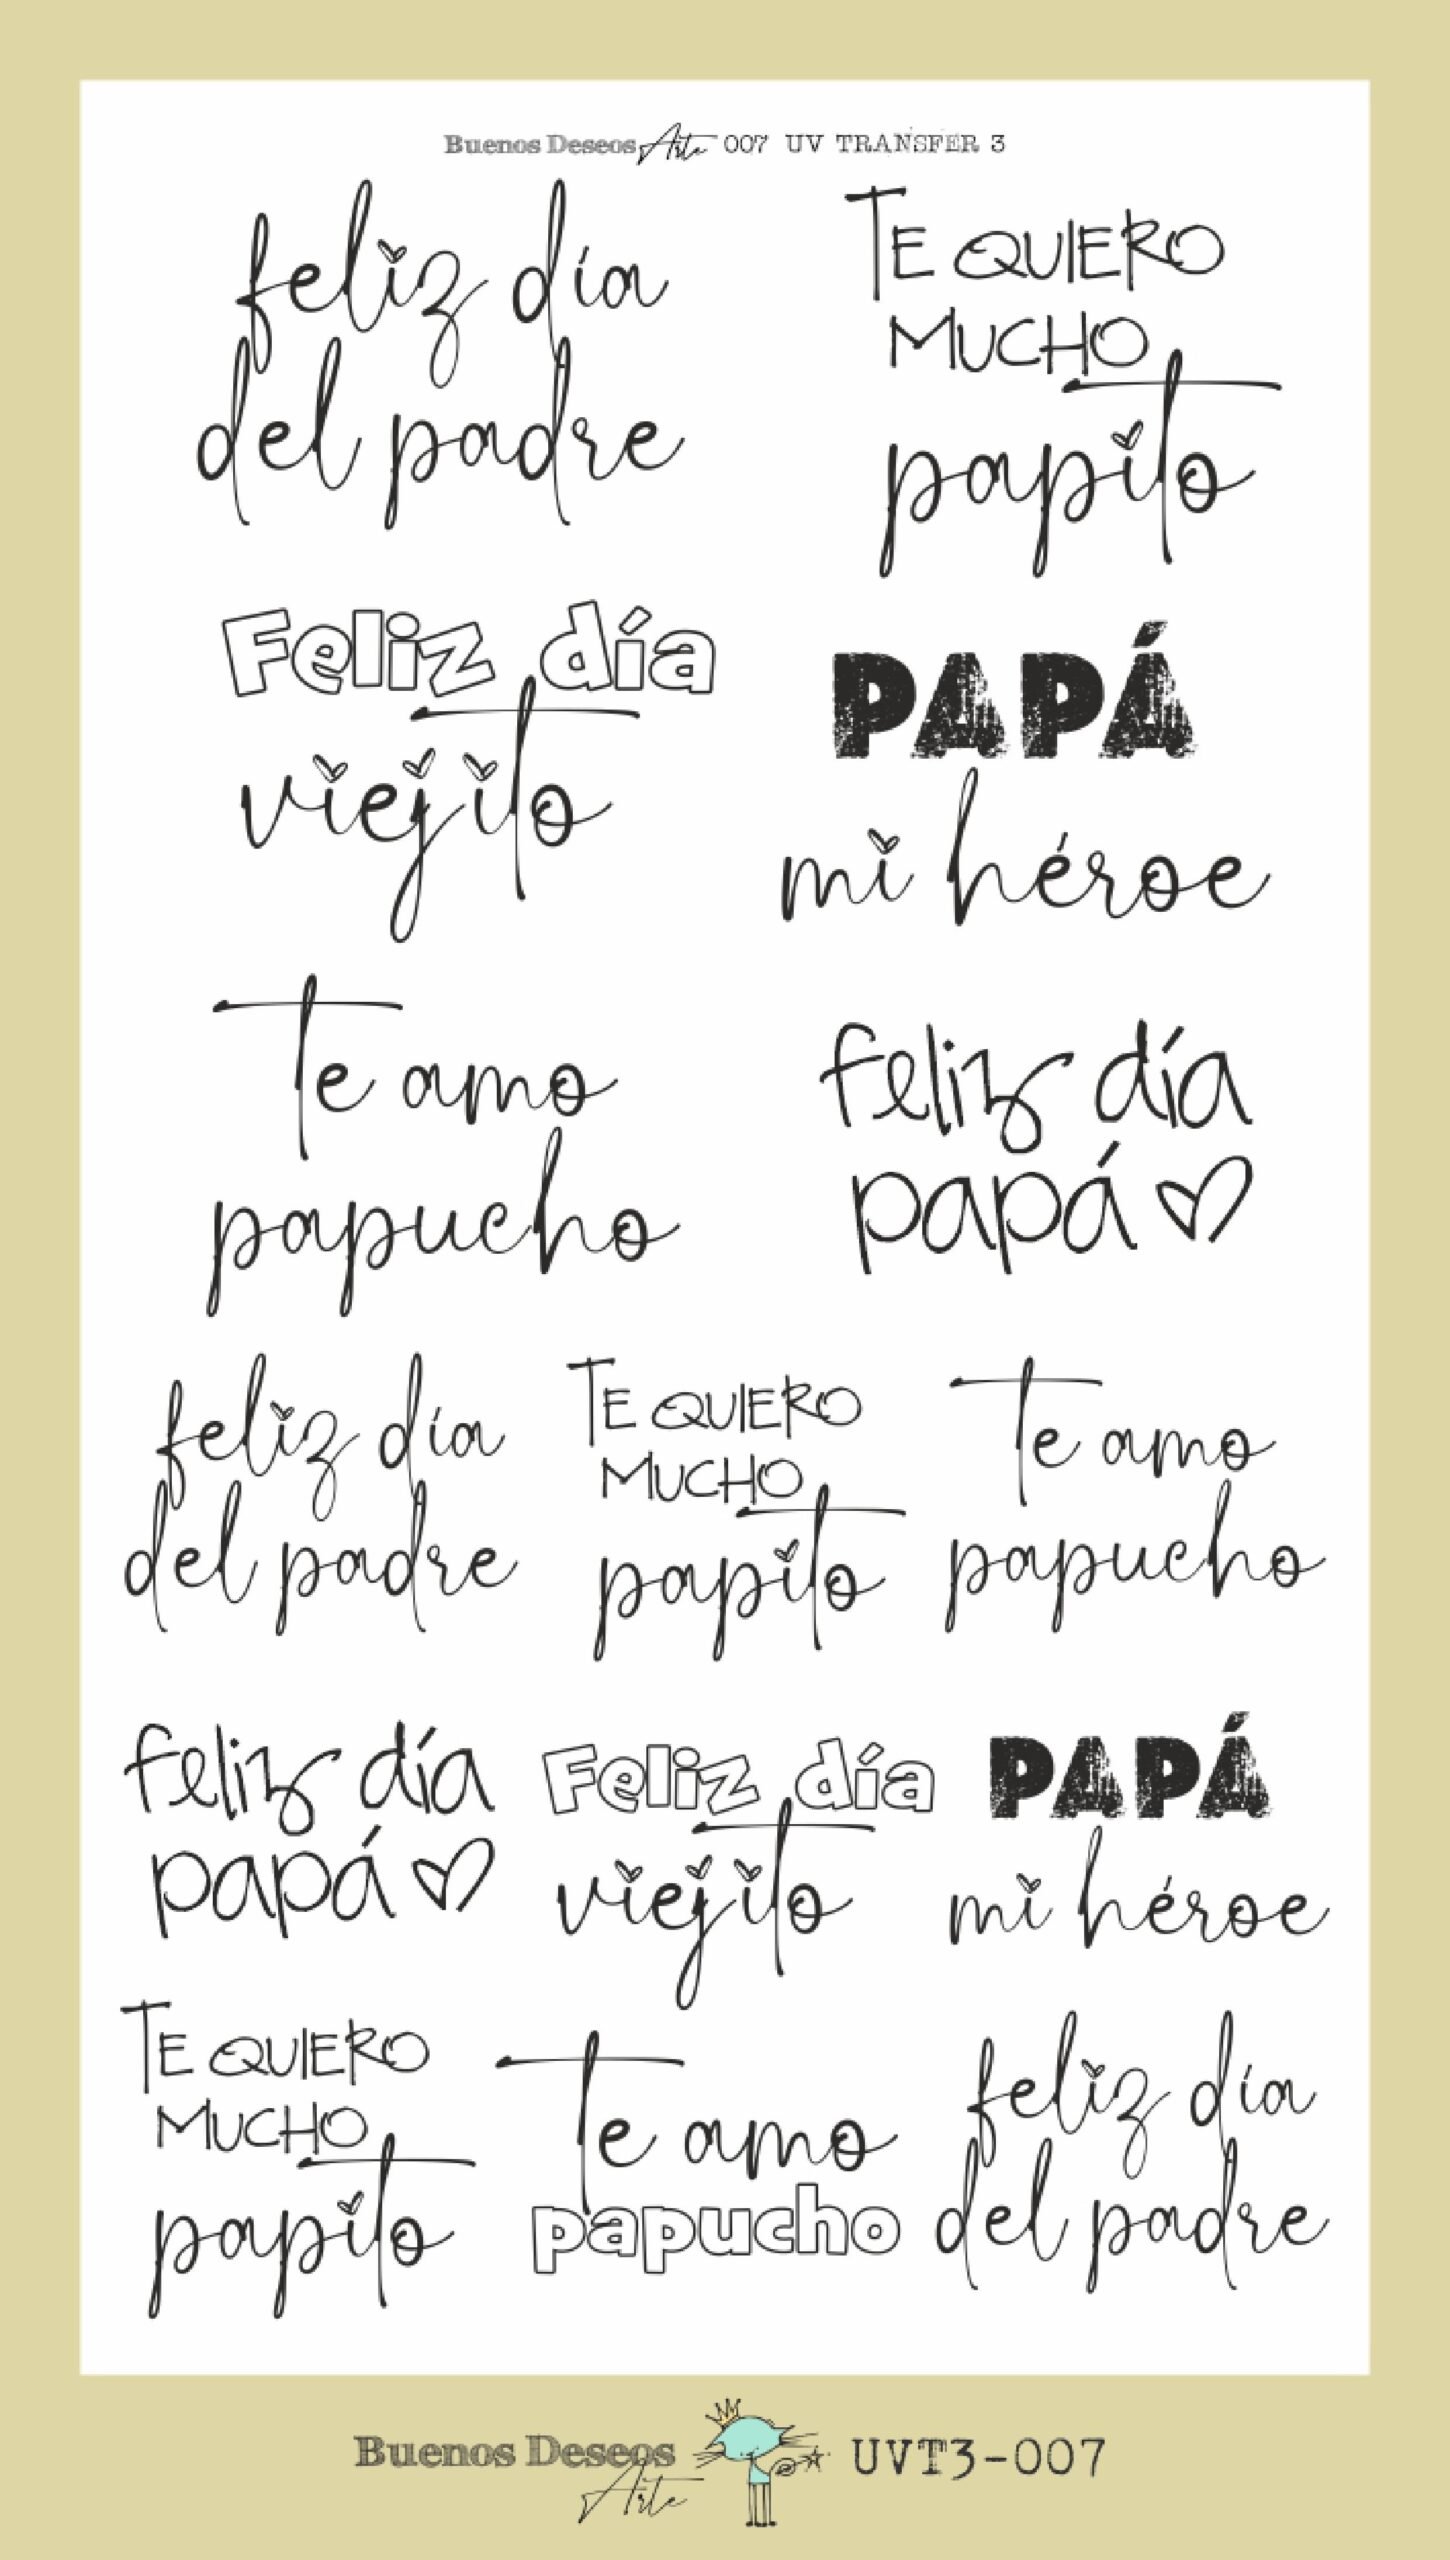 Buenos Deseos Arte 007 UV TRANSFER 3
feliz día
del padre
TE QUIERO
MUCHO
papito
Feliz día
viejito
PAPÁ
mi héroe
Te amo
papucho
feliz día
papá
feliz día
del padre
TE QUIERO
MUCHO
papito
Te amo
papucho
feliz día
papá
Feliz día
viejito
PAPÁ
mi héroe
TE QUIERO
MUCHO
papito
Te amo
papucho
feliz día
del padre
Buenos Deseos
Arte
UVT3-007